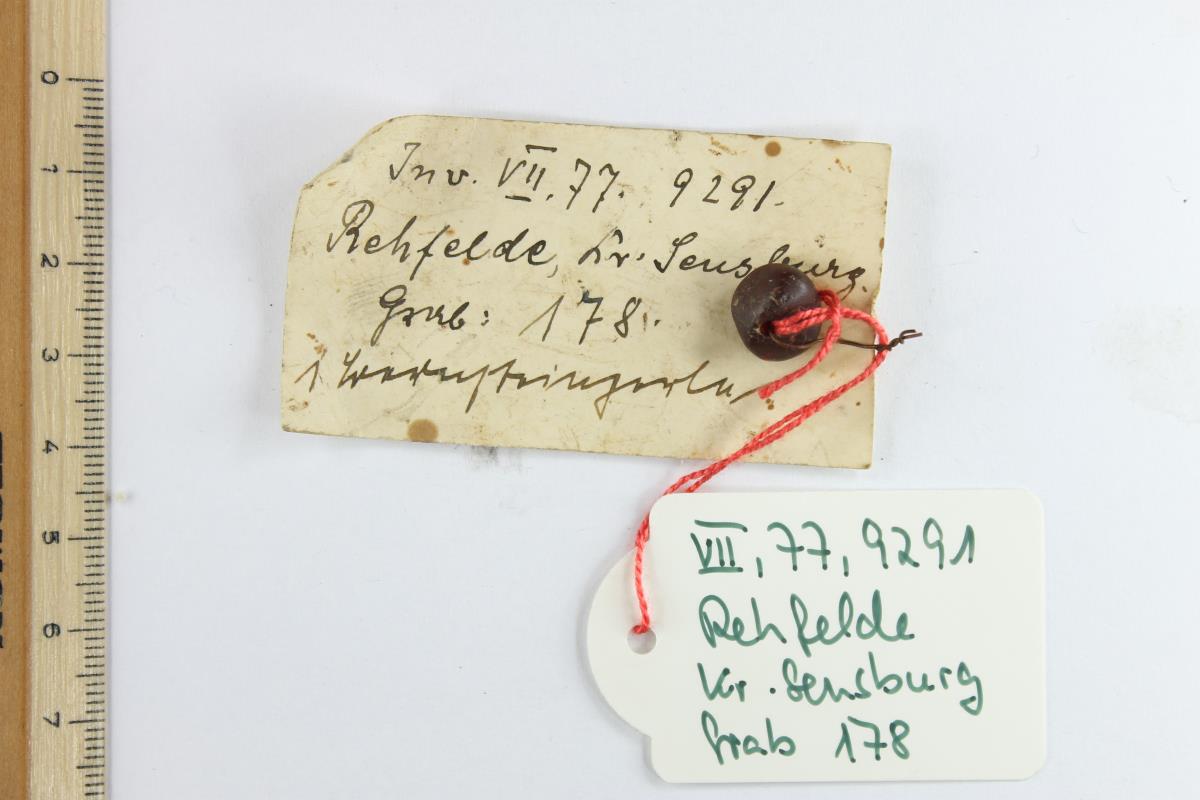 Inv. VII. 77. 9291.
Rehfelde, Kr. Sensburg.
Grab: 178.
1 Bernsteinperle
VII, 77, 9291
Rehfelde
Kr. Sensburg
Grab 178
0
1
2
3
4
5
6
7